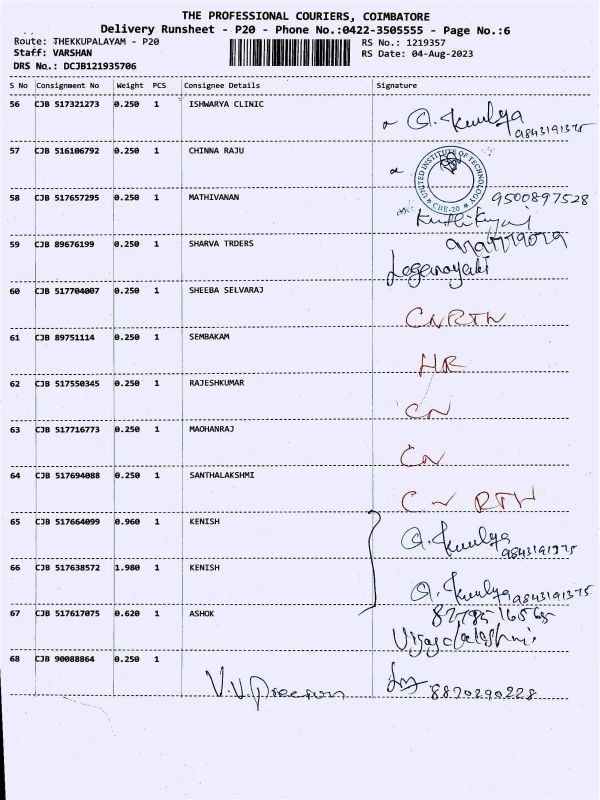 THE PROFESSIONAL COURIERS, COIMBATORE
Delivery Runsheet - P20 - Phone No.:0422-3505555 - Page No.:6
Route: THEKKUPALAYAM - P20 RS No.: 1219357
Staff: VARSHAN RS Date: 04-Aug-2023
DRS No.: DCJB121935706
S No Consignment No Weight PCS Consignee Details Signature
56 CJB 517321273 0.250 1 ISHWARYA CLINIC
9843191375
57 CJB 516106792 0.250 1 CHINNA RAJU
UNITED INSTITUTE OF TECHNOLOGY
* CBE-20 *
58 CJB 517657295 0.250 1 MATHIVANAN 9500897528
59 CJB 89676199 0.250 1 SHARVA TRDERS
Loganayaki
60 CJB 517704007 0.250 1 SHEEBA SELVARAJ
CNRTN
61 CJB 89751114 0.250 1 SEMBAKAM
HR
62 CJB 517550345 0.250 1 RAJESHKUMAR
CN
63 CJB 517716773 0.250 1 MAOHANRAJ
CN
64 CJB 517694088 0.250 1 SANTHALAKSHMI
CN RTN
65 CJB 517664099 0.960 1 KENISH
9843191375
66 CJB 517638572 1.980 1 KENISH
9843191375
67 CJB 517617075 0.620 1 ASHOK
Vijayalakshmi
68 CJB 90088864 0.250 1
8870290228